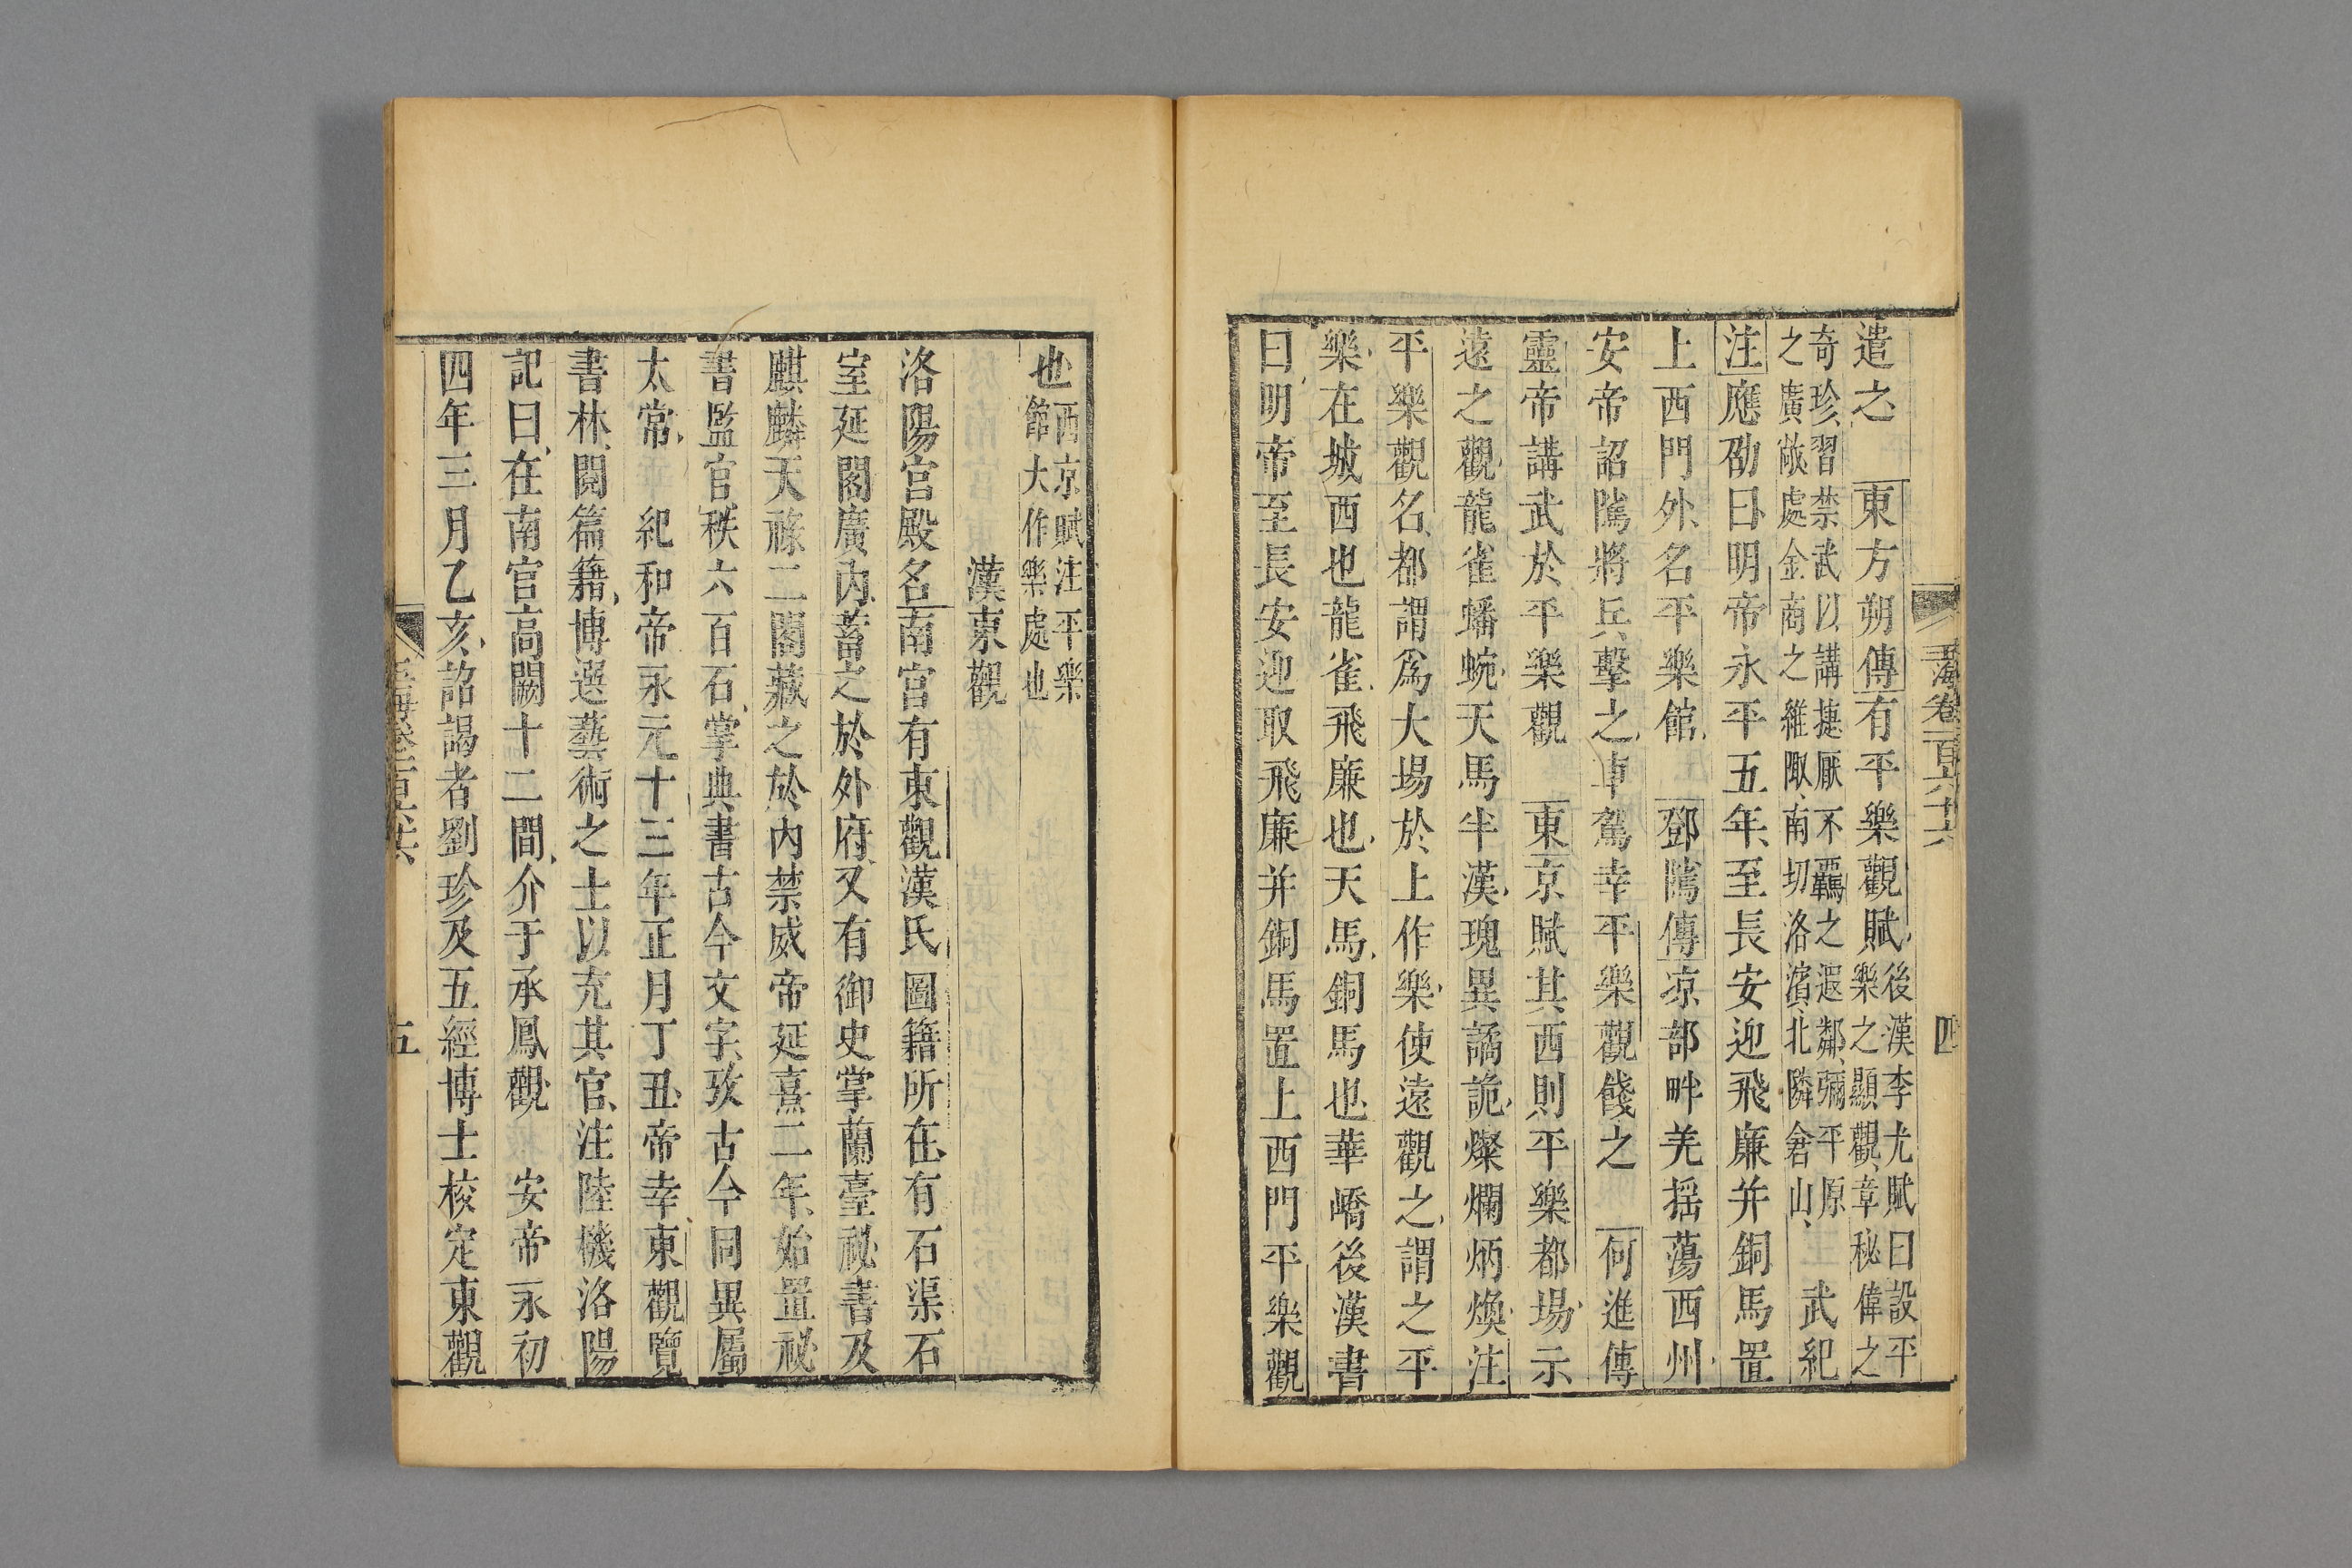 玉海卷一百六十六
四
遣之東方朔傳有平樂觀賦後漢李尤賦曰設平
樂之顯觀章秘偉之
奇珍習禁武以講捷厭不羈之遐鄰彌平原
之廣敞處金商之維陬南切洛濱北隣倉山武紀
注應劭曰明帝永平五年至長安迎飛廉并銅馬置
上西門外名平樂館鄧隲傳凉部畔羌揺蕩西州
安帝詔隲將兵擊之車駕幸平樂觀餞之何進傳
靈帝講武於平樂觀東京賦其西則平樂都場示
遠之觀龍雀蟠蜿天馬半漢瑰異譎詭燦爛炳煥注
平樂觀名都謂爲大場於上作樂使遠觀之謂之平
樂在城西也龍雀飛廉也天馬銅馬也華嶠後漢書
曰明帝至長安迎取飛廉并銅馬置上西門平樂觀
也西京賦注平樂
館大作樂處也
漢東觀
洛陽宫殿名南宫有東觀漢氏圖籍所在有石渠石
室延閣廣内蓄之於外府又有御史掌蘭臺祕書及
麒麟天祿二閣藏之於內禁威帝延熹二年始置祕
書監官秩六百石掌典書古今文字攷古今同異屬
太常紀和帝永元十三年正月丁丑帝幸東觀覽
書林閱篇籍博選藝術之士以充其官注陸機洛陽
記曰在南宫高闕十二間介于承鳳觀安帝永初
四年三月乙亥詔謁者劉珍及五經博士校定東觀
玉海卷一百六十六
五